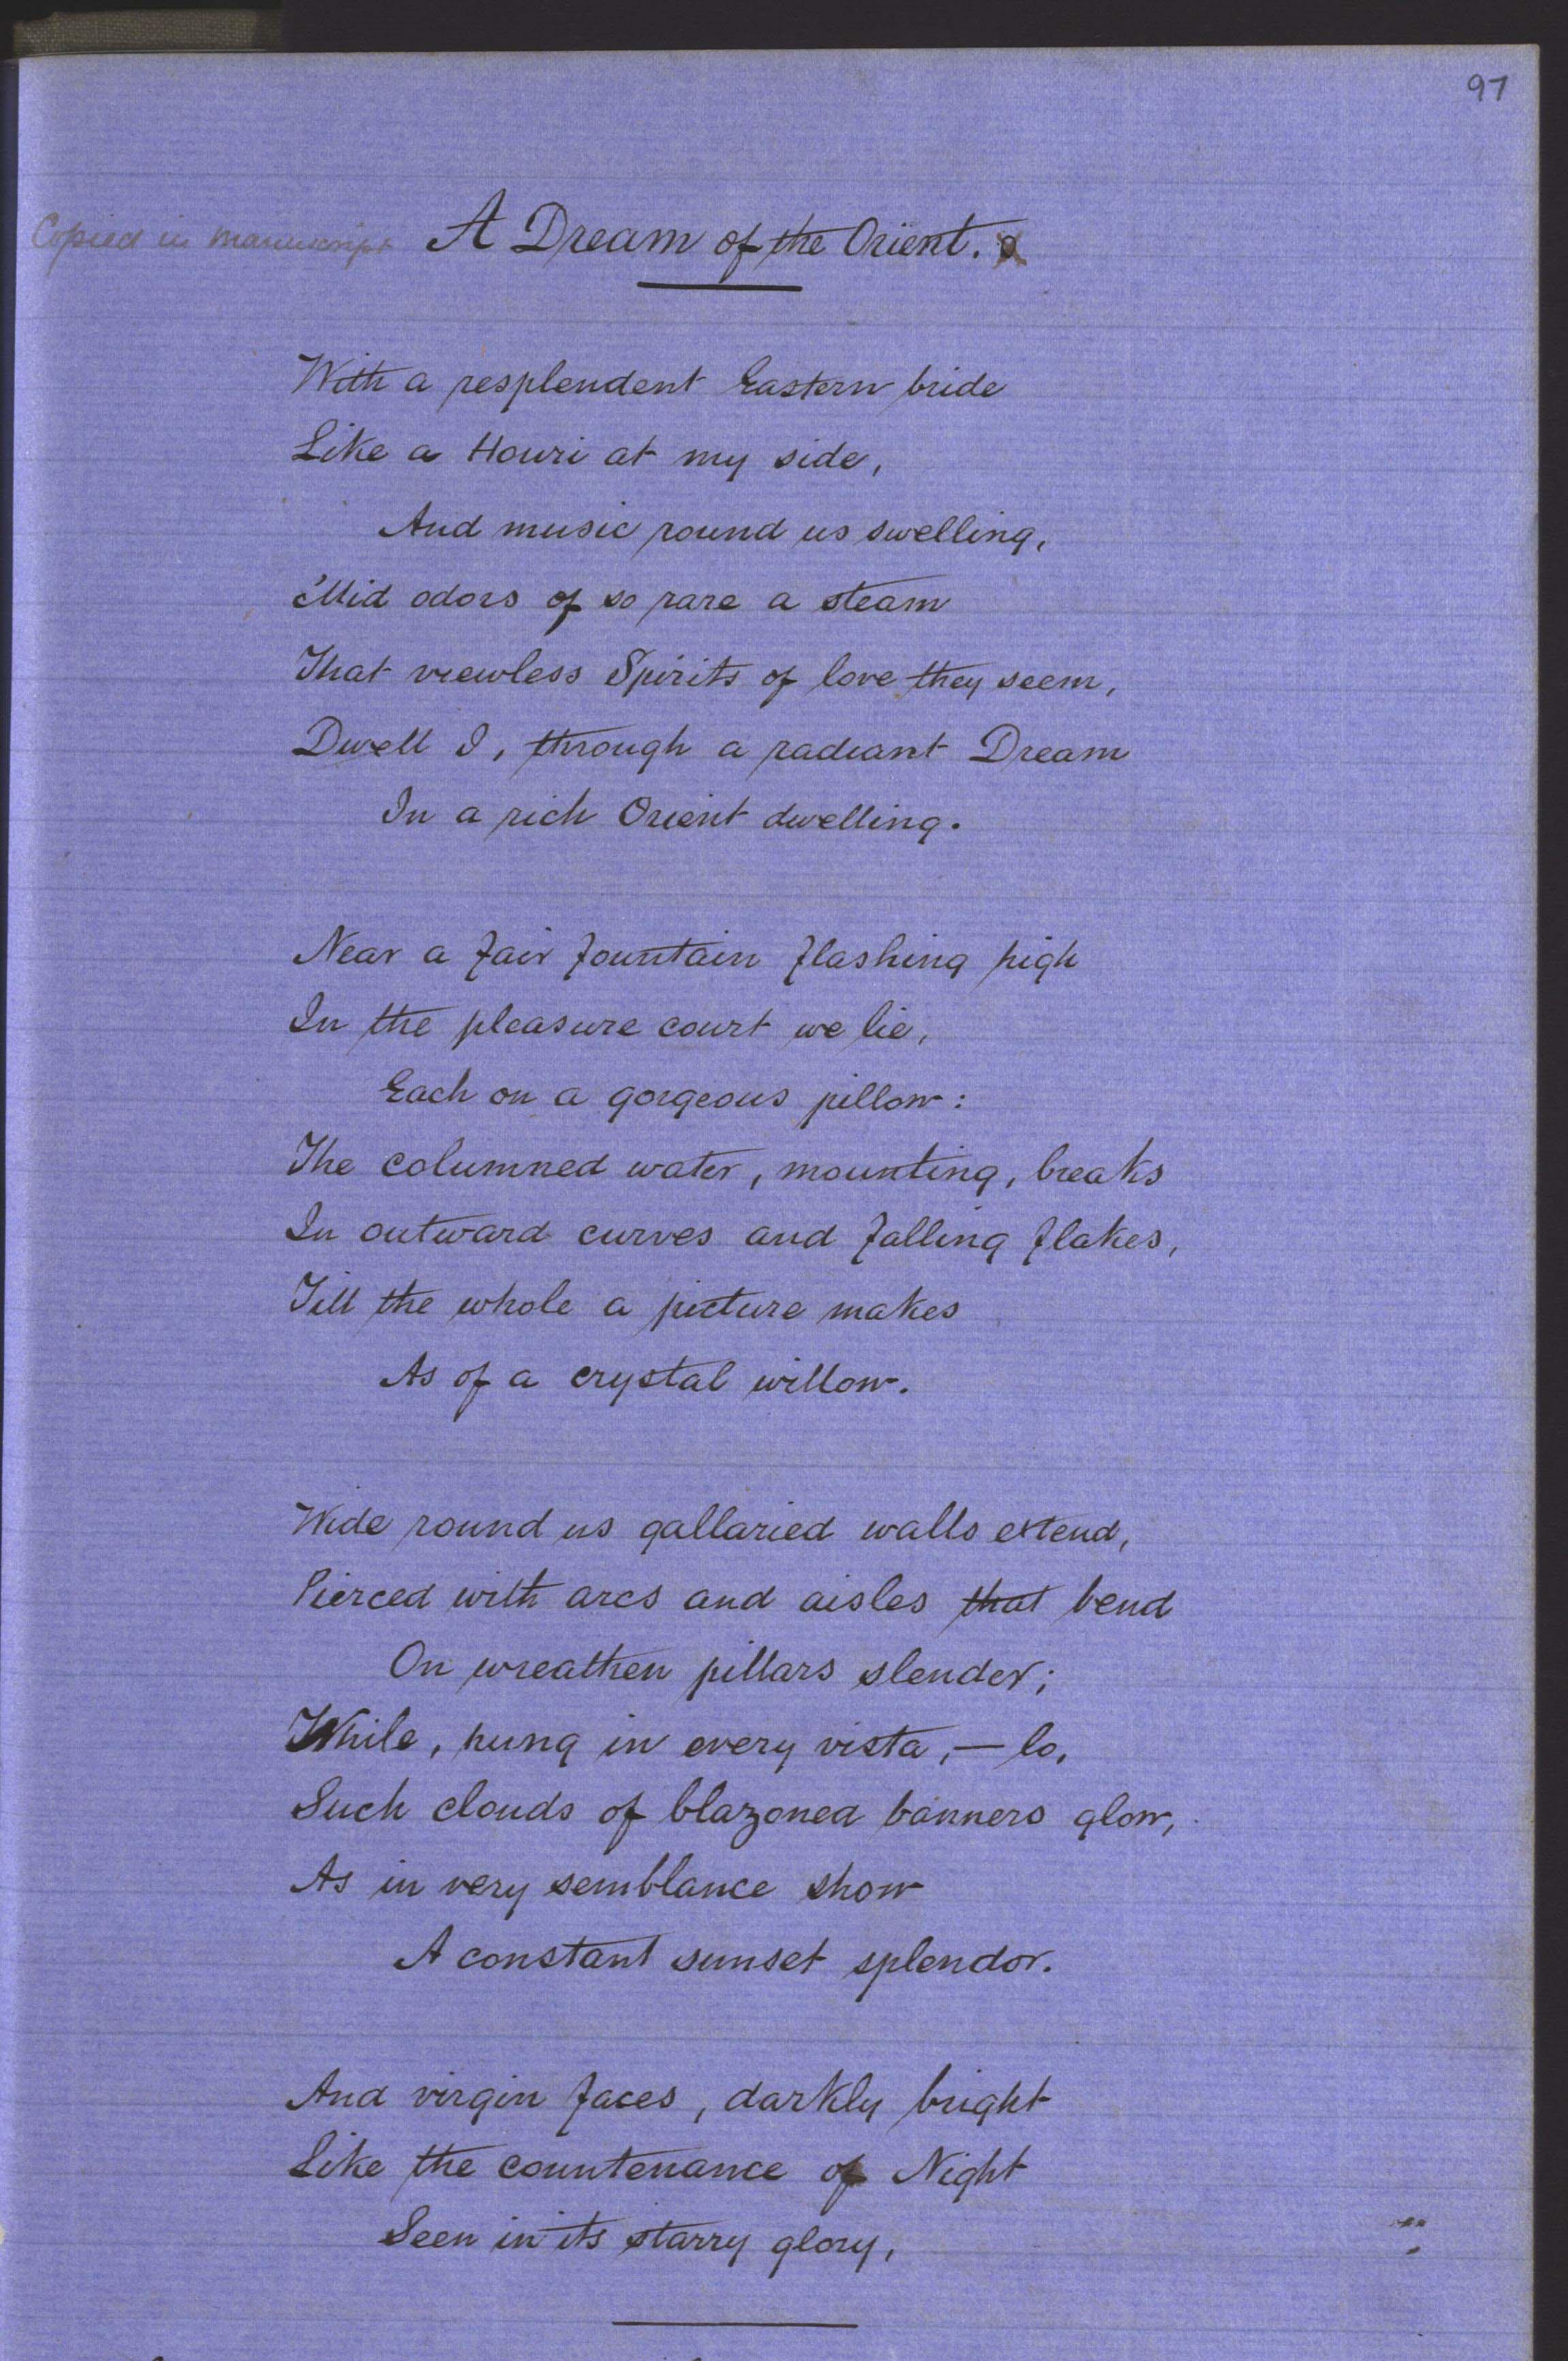 97
Copied in manuscript A Dream of the Orient.
With a resplendent Eastern bride
Like a Houri at my side,
And music round us swelling,
'Mid odors of so rare a steam
That viewless Spirits of love they seem,
Dwell I, through a radiant Dream
In a rich Orient dwelling.
Near a fair fountain flashing high
In the pleasure court we lie,
Each on a gorgeous pillow:
The columned water, mounting, breaks
In outward curves and falling flakes,
Till the whole a picture makes
As of a crystal willow.
Wide round us gallaried walls extend,
Pierced with arcs and aisles that bend
On wreathen pillars slender;
While, hung in every vista,— lo,
Such clouds of blazoned banners glow,
As in very semblance show
A constant sunset splendor.
And virgin faces, darkly bright
Like the countenance of Night
Seen in its starry glory,